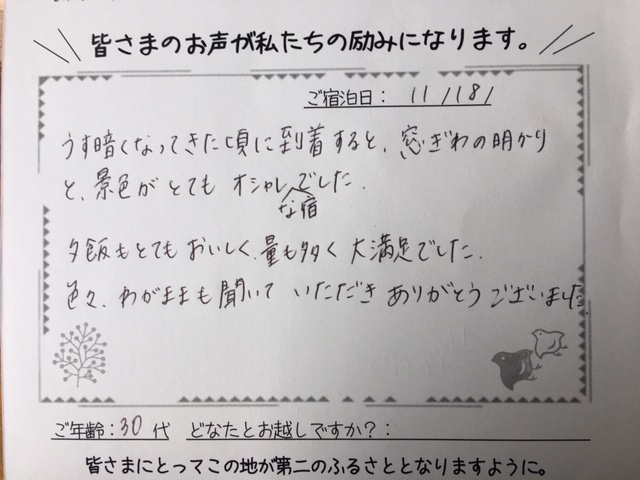 皆さまのお声が私たちの励みになります。
ご宿泊日： 11/18/
うす暗くなってきた頃に到着すると、窓ぎわの明かり
と、景色がとても オシャレでした。
な宿
夕飯もとてもおいしく、量も多く 大満足でした。
色々、わがままも聞いて いただき ありがとうございました
ご年齢：30代 どなたとお越しですか？：
皆さまにとってこの地が第二のふるさととなりますように。